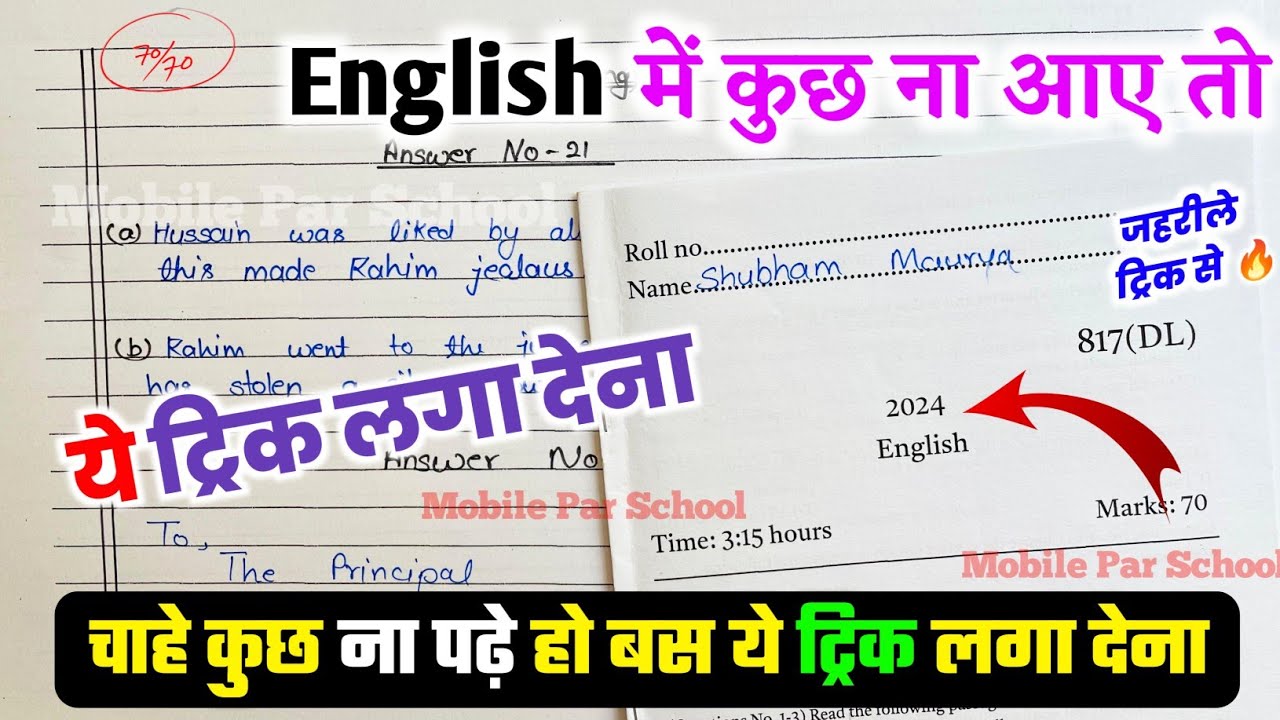 70/70
English में कुछ ना आए तो
Answer No-21
Mobile Par School
(a) Hussain was liked by al
this made Rahim jealaus
(b) Rahim went to the
has stolen a
ये ट्रिक लगा देना
Answer No
To,
The Principal
Roll no.
Name. Shubham Maurya
जहरीले
ट्रिक से 🔥
817(DL)
2024
English
Marks: 70
Time: 3:15 hours
Mobile Par School
Mobile Par School
चाहे कुछ ना पढ़े हो बस ये ट्रिक लगा देना
No. 1-3) Read the following